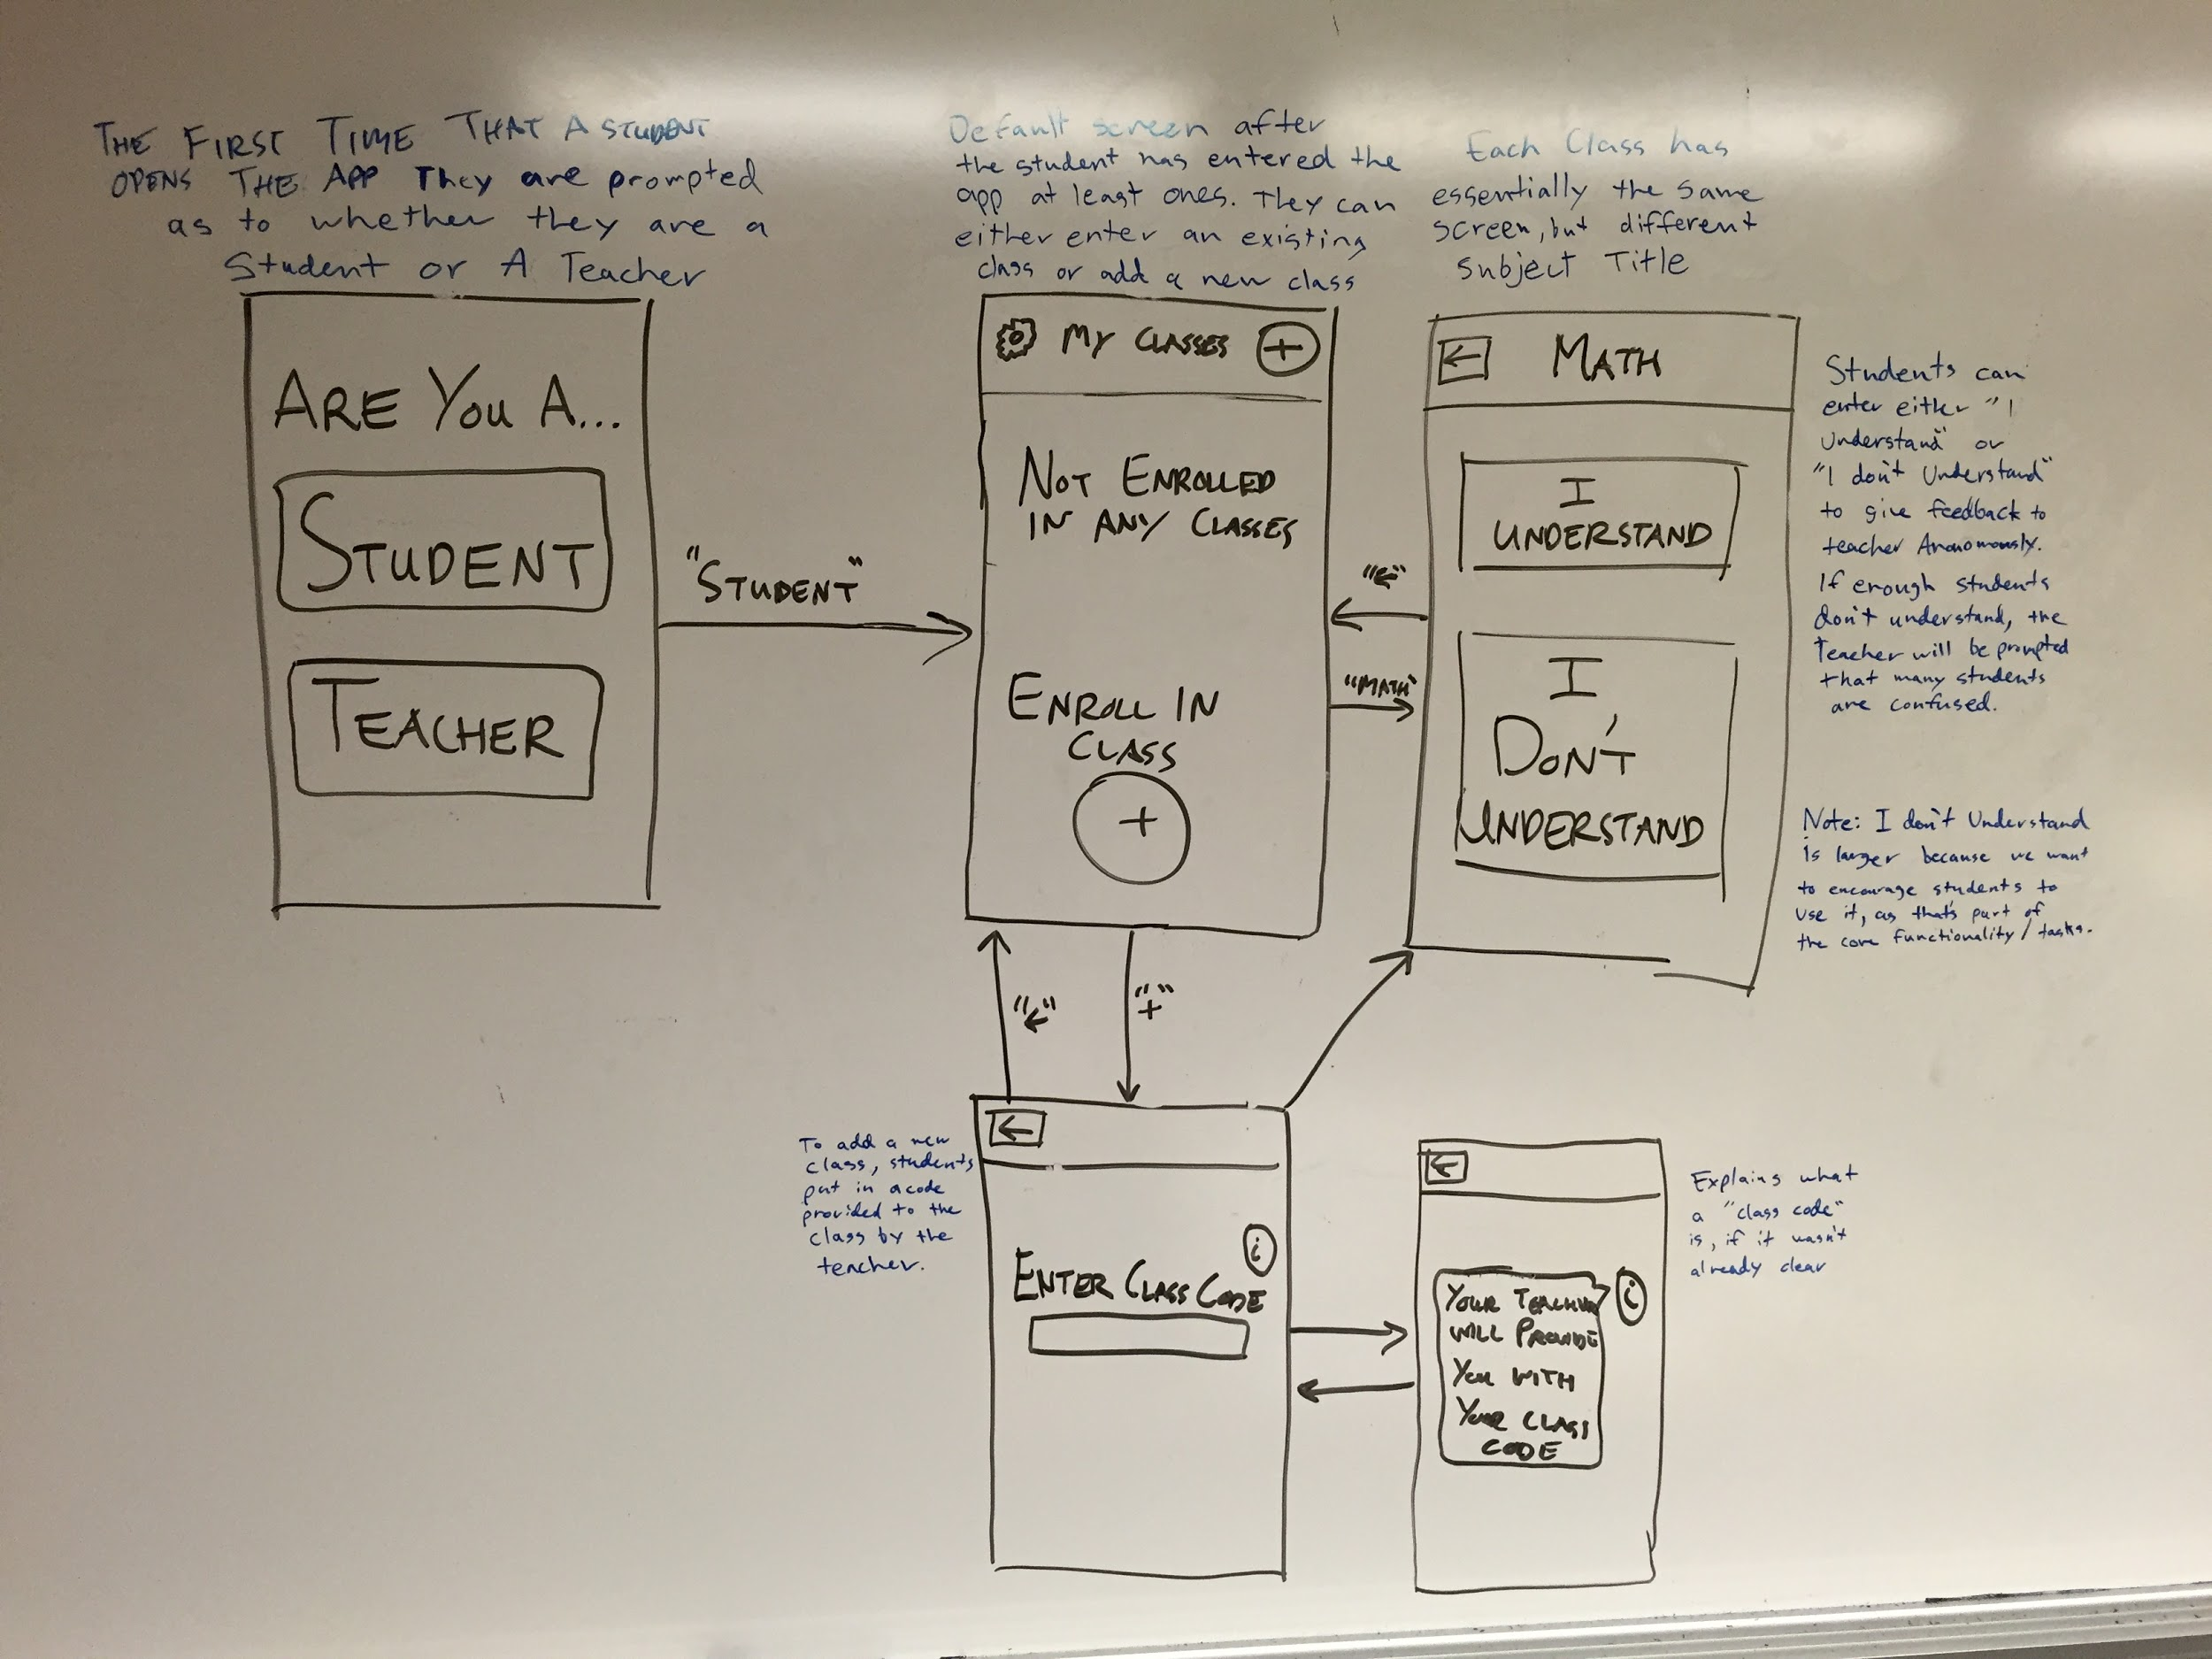 THE FIRST TIME THAT A STUDENT
OPENS THE APP They are prompted
as to whether they are a
Student or A Teacher
ARE YOU A...
STUDENT
TEACHER
"STUDENT"
Default screen after
the student has entered the
app at least ones. They can
either enter an existing
class or add a new class
MY CLASSES +
NOT ENROLLED
IN ANY CLASSES
ENROLL IN
CLASS
+
"←"
"MATH"
Each Class has
essentially the same
screen, but different
Subject Title
← MATH
I
UNDERSTAND
I
DON'T
UNDERSTAND
Students can
enter either "I
Understand" or
"I don't Understand"
to give feedback to
teacher Anonomously.
If enough students
don't understand, the
Teacher will be prompted
that many students
are confused.
Note: I don't Understand
is larger because we want
to encourage students to
use it, as that's part of
the core functionality/tasks.
"←"
"+"
To add a new
class, students
put in a code
provided to the
class by the
teacher.
←
i
ENTER CLASS CODE
←
i
YOUR TEACHER
WILL PROVIDE
YOU WITH
YOUR CLASS
CODE
Explains what
a "class code"
is, if it wasn't
already clear